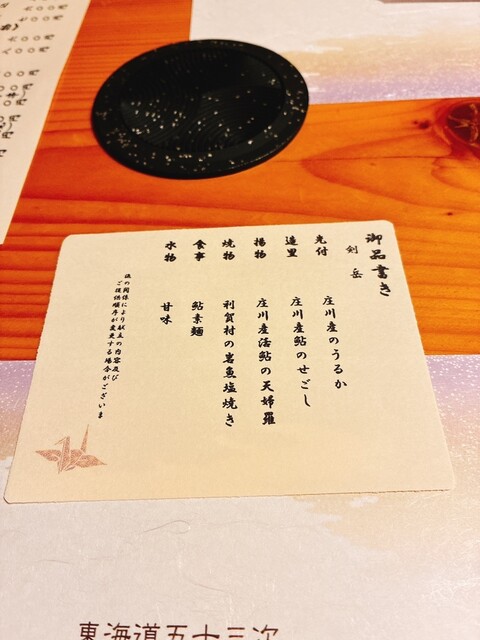 御品書き
剣岳
先付 庄川産のうるか
造里 庄川産鮎のせごし
揚物 庄川産活鮎の天婦羅
焼物 利賀村の岩魚塩焼き
食事 鮎素麺
水物 甘味
ご提供順序が変更する場合がございま
東海道五十三次